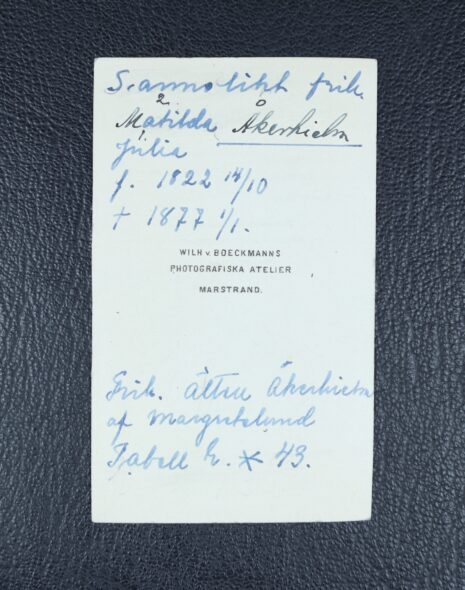 Sannolikt frih.
2
Matilda Åkerhielm
1
Julia
f. 1822 14/10
† 1877 1/1.
WILH v. BOECKMANNS
PHOTOGRAFISKA ATELIER
MARSTRAND.
Frih. ätten Åkerhielm
af Margretelund
Tabell
43.